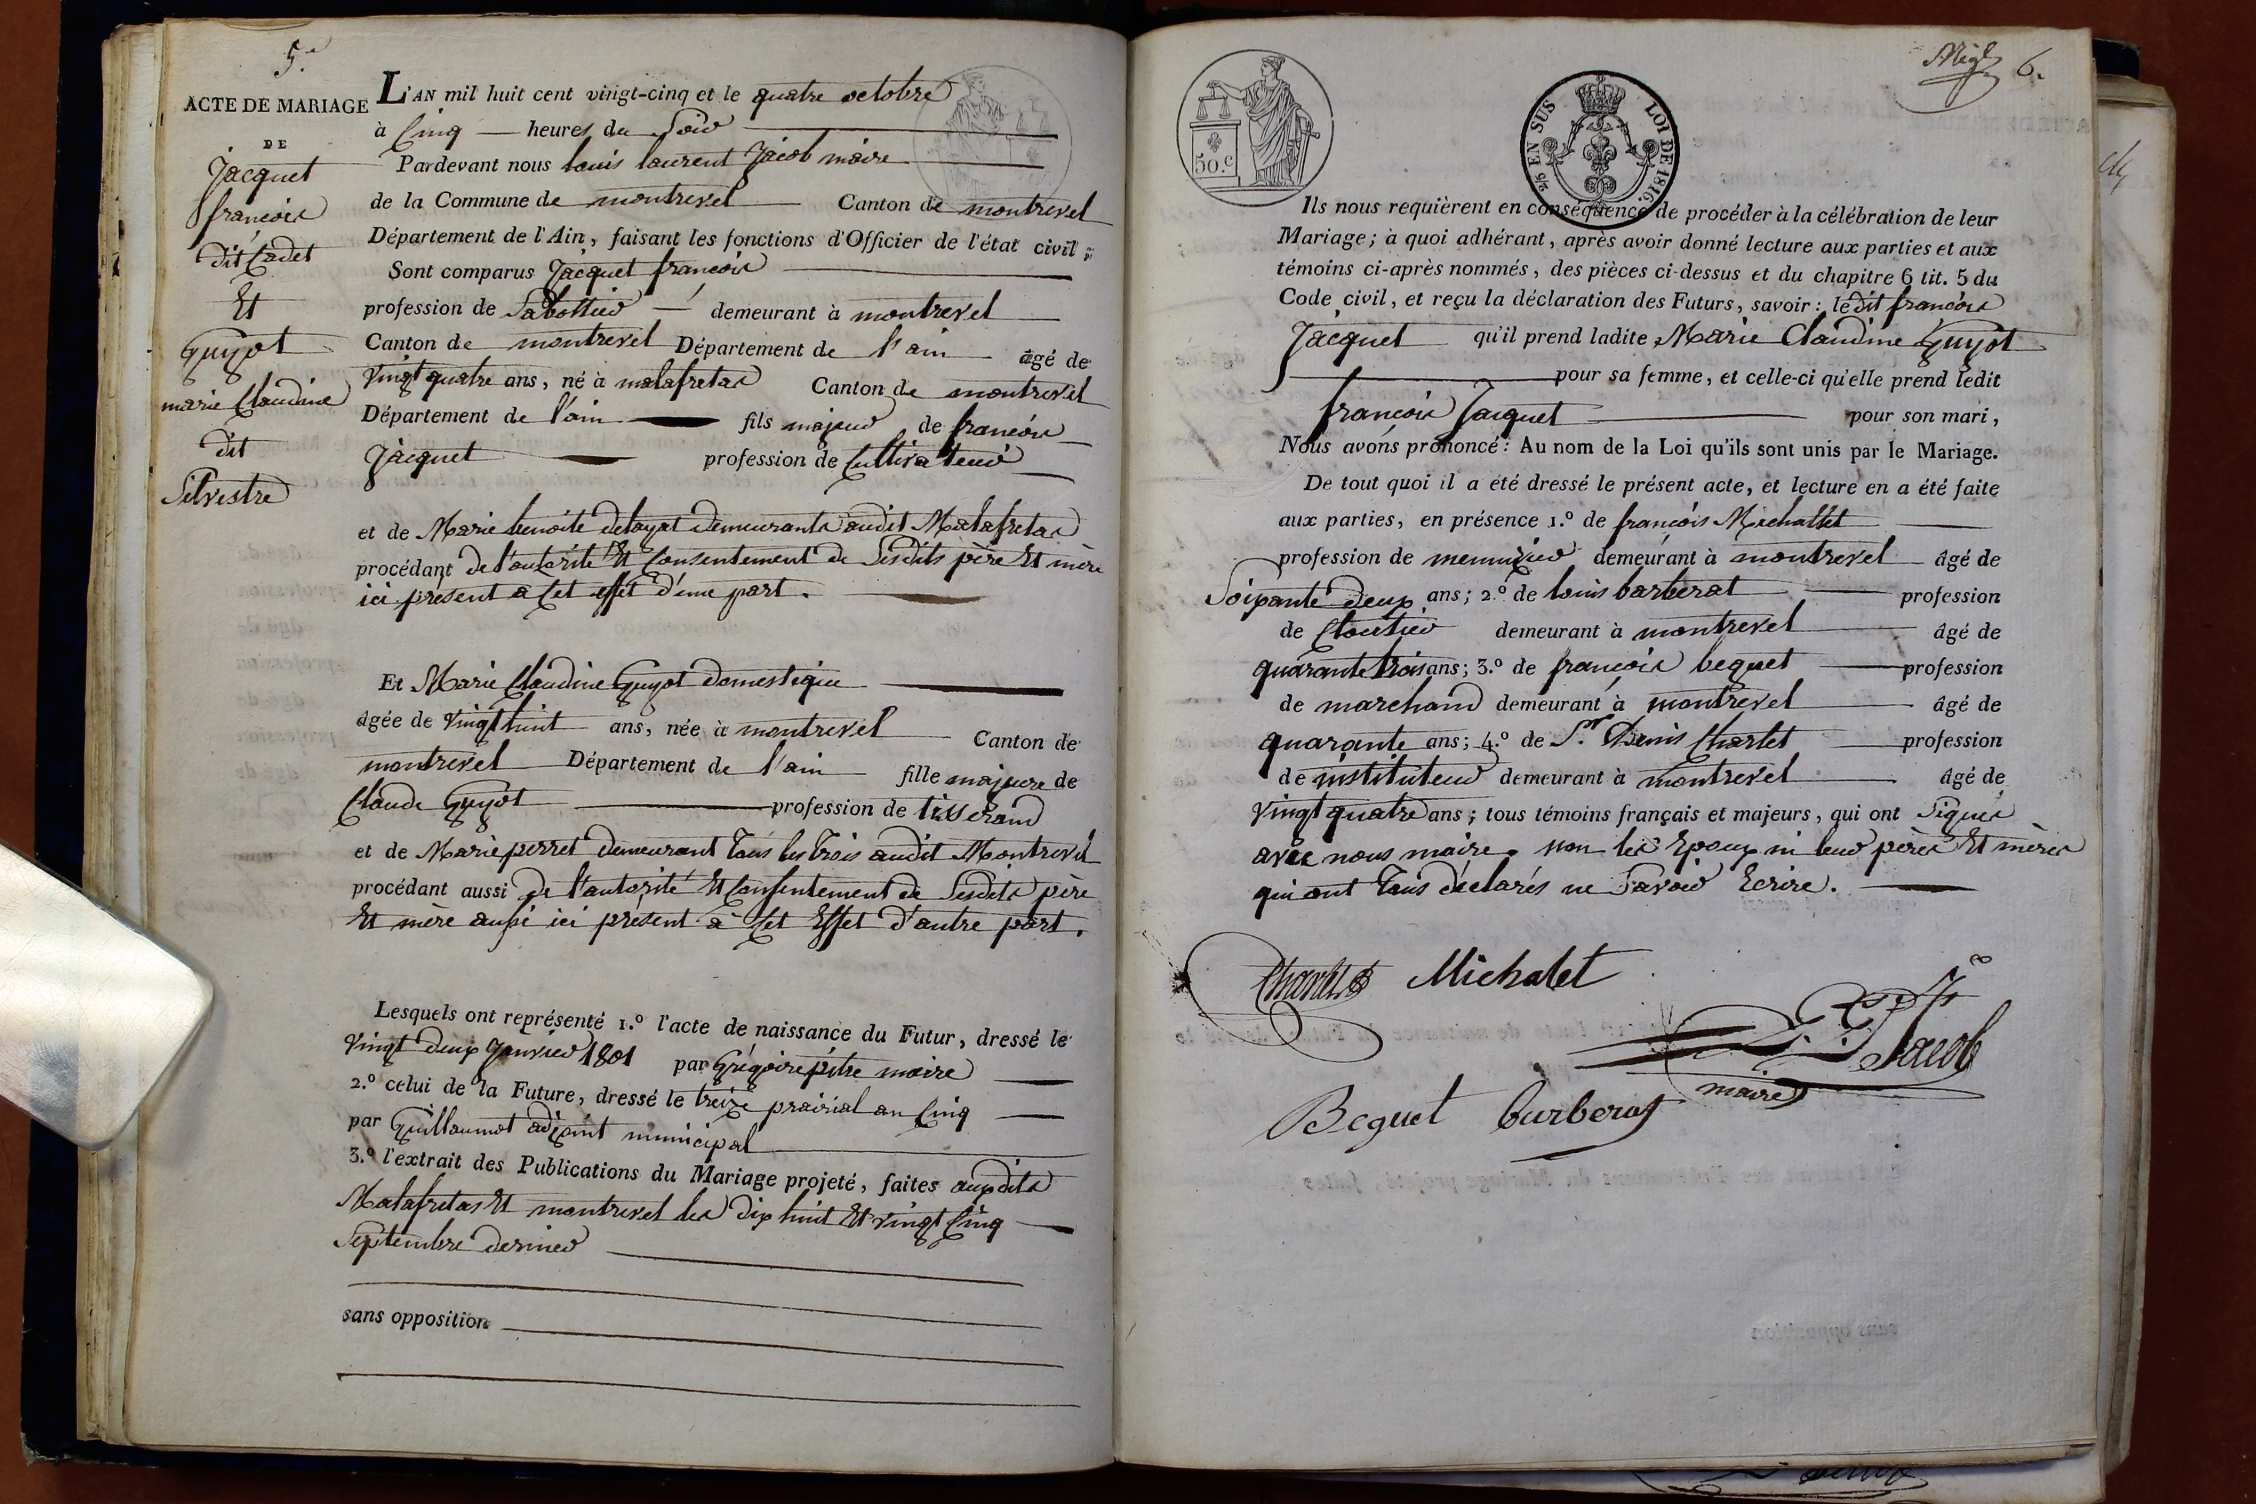 5.e
ACTE DE MARIAGE
DE
Jacquet
françois
dit Cadet
Et
Guyot
marie Claudine
dit
Silvestre
L'AN mil huit cent vingt-cinq et le quatre octobre
à Cinq heures du Soir
Pardevant nous louis laurent Jacob maire
de la Commune de montrevel Canton de montrevel
Département de l'Ain, faisant les fonctions d'Officier de l'état civil ;
Sont comparus Jacquet françois
profession de Sabottier demeurant à montrevel
Canton de montrevel Département de l'ain âgé de
Vingt quatre ans, né à malafretas Canton de montrevel
Département de l'ain fils majeur de françois
Jacquet profession de Cultivateur
et de Marie benoite delayat demeurants audit Malafretas
procédant de l'autorité Et Consentement de Sesdits père Et mère
ici présent a Cet effet d'une part.
Et Marie Claudine Guyot domestique
âgée de Vingt huit ans, née à montrevel Canton de
montrevel Département de l'ain fille majeure de
Claude Guyot profession de tisserand
et de Marie perret demeurant Tous les trois audit Montrevel
procédant aussi de l'autorité Et Consentement de Sesdits père
Et mère aussi ici présent a Cet Effet d'autre part.
Lesquels ont représenté 1.º l'acte de naissance du Futur, dressé le
Vingt deux Janvier 1801 par Grégoire pitre maire
2.º celui de la Future, dressé le treize prairial an Cinq
par Guillaumot adjoint municipal
3.º l'extrait des Publications du Mariage projeté, faites auxdits
Malafretas Et montrevel les dix huit Et vingt Cinq
Septembre dernier
sans opposition
50.c
2/5 EN SUS LOI DE 1816.
6.
Ils nous requièrent en conséquence de procéder à la célébration de leur
Mariage; à quoi adhérant, après avoir donné lecture aux parties et aux
témoins ci-après nommés, des pièces ci-dessus et du chapitre 6 tit. 5 du
Code civil, et reçu la déclaration des Futurs, savoir: ledit françois
Jacquet qu'il prend ladite Marie Claudine Guyot
pour sa femme, et celle-ci qu'elle prend ledit
françois Jacquet pour son mari,
Nous avons prononcé: Au nom de la Loi qu'ils sont unis par le Mariage.
De tout quoi il a été dressé le présent acte, et lecture en a été faite
aux parties, en présence 1.º de françois Michallet
profession de menuzier demeurant à montrevel âgé de
Soixante deux ans; 2.º de louis barberat profession
de Cloutier demeurant à montrevel âgé de
quarante trois ans; 3.º de françois beguet profession
de marchand demeurant à montrevel âgé de
quarante ans; 4.º de S.r Denis Charlet profession
de instituteur demeurant à montrevel âgé de
Vingt quatre ans; tous témoins français et majeurs, qui ont Signés
avec nous maire, non les Epoux ni leur pères Et mères
qui ont Tous déclarés ne Savoir Ecrire.
Charlet Michalet
Jacob
maire
Beguet Burberat